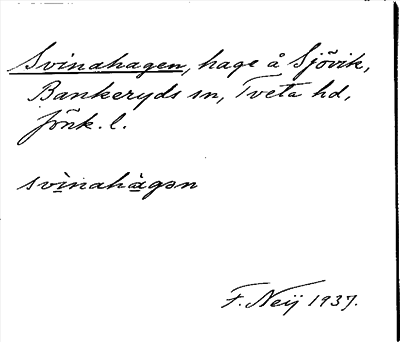 Svinahagen, hage å Sjövik,
Bankeryds sn, Tveta hd,
Jönk. l.
svìnahàgən
F. Neij 1937.